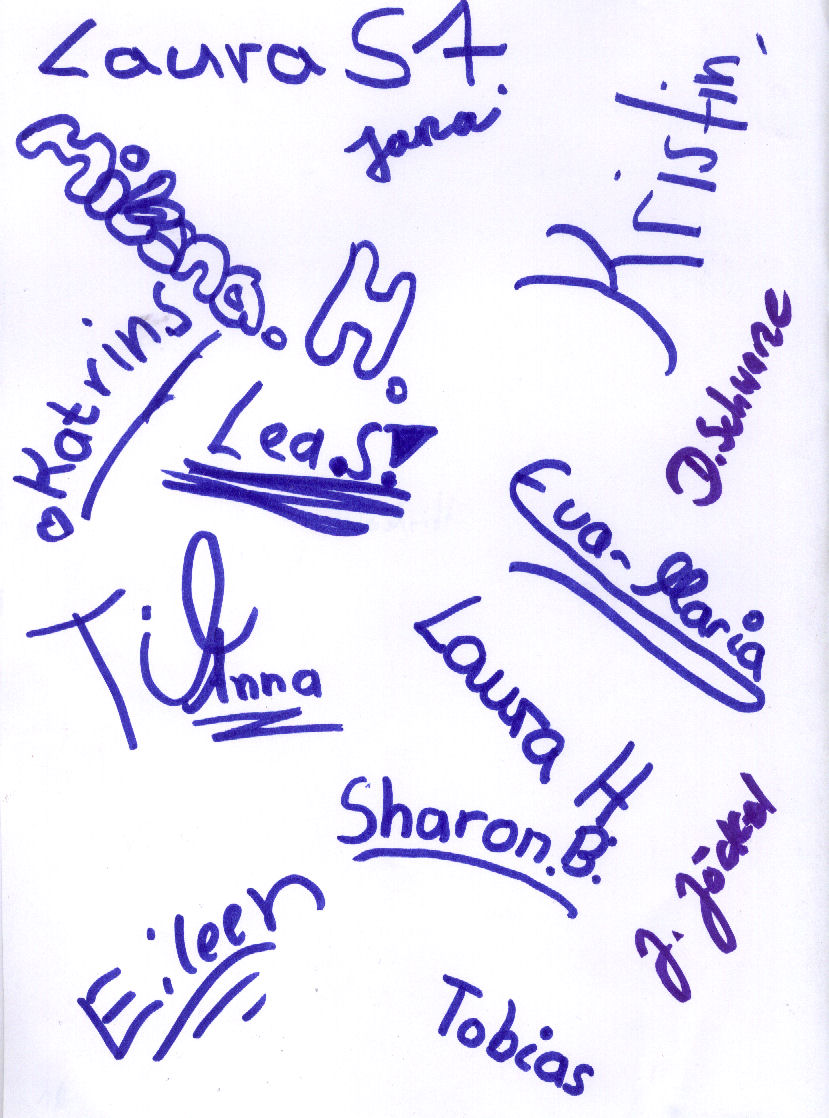 Laura St
Jana
Kristin
H.
Katrin S
Lea.S.
D. Schwarze
Eva-Maria
Till
Anna
Laura H
Sharon.B.
J. Jöckel
Eileen
Tobias